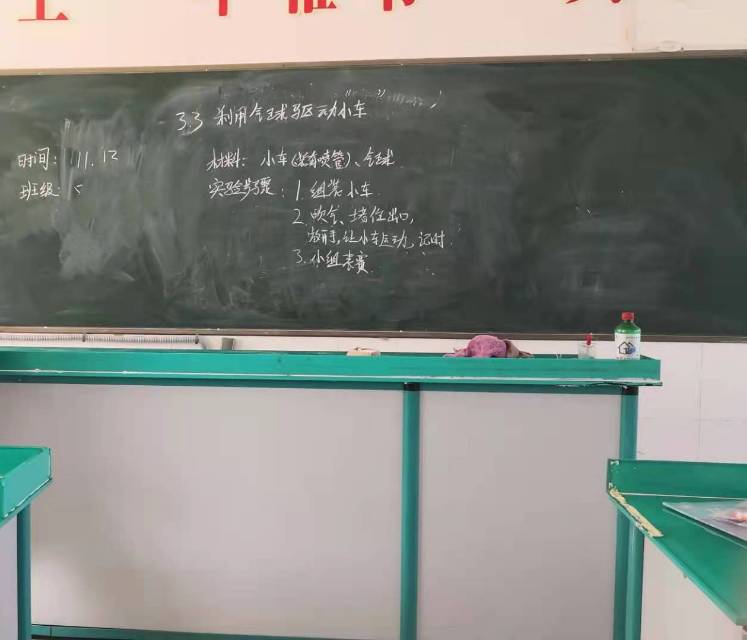 3.3 利用气球驱动小车
时间: 11.12
材料: 小车(装有喷管)、气球
班级:
实验步骤: 1. 组装小车
2. 吹气、堵住出口,
放开,让小车运动,记时.
3. 小组来赛